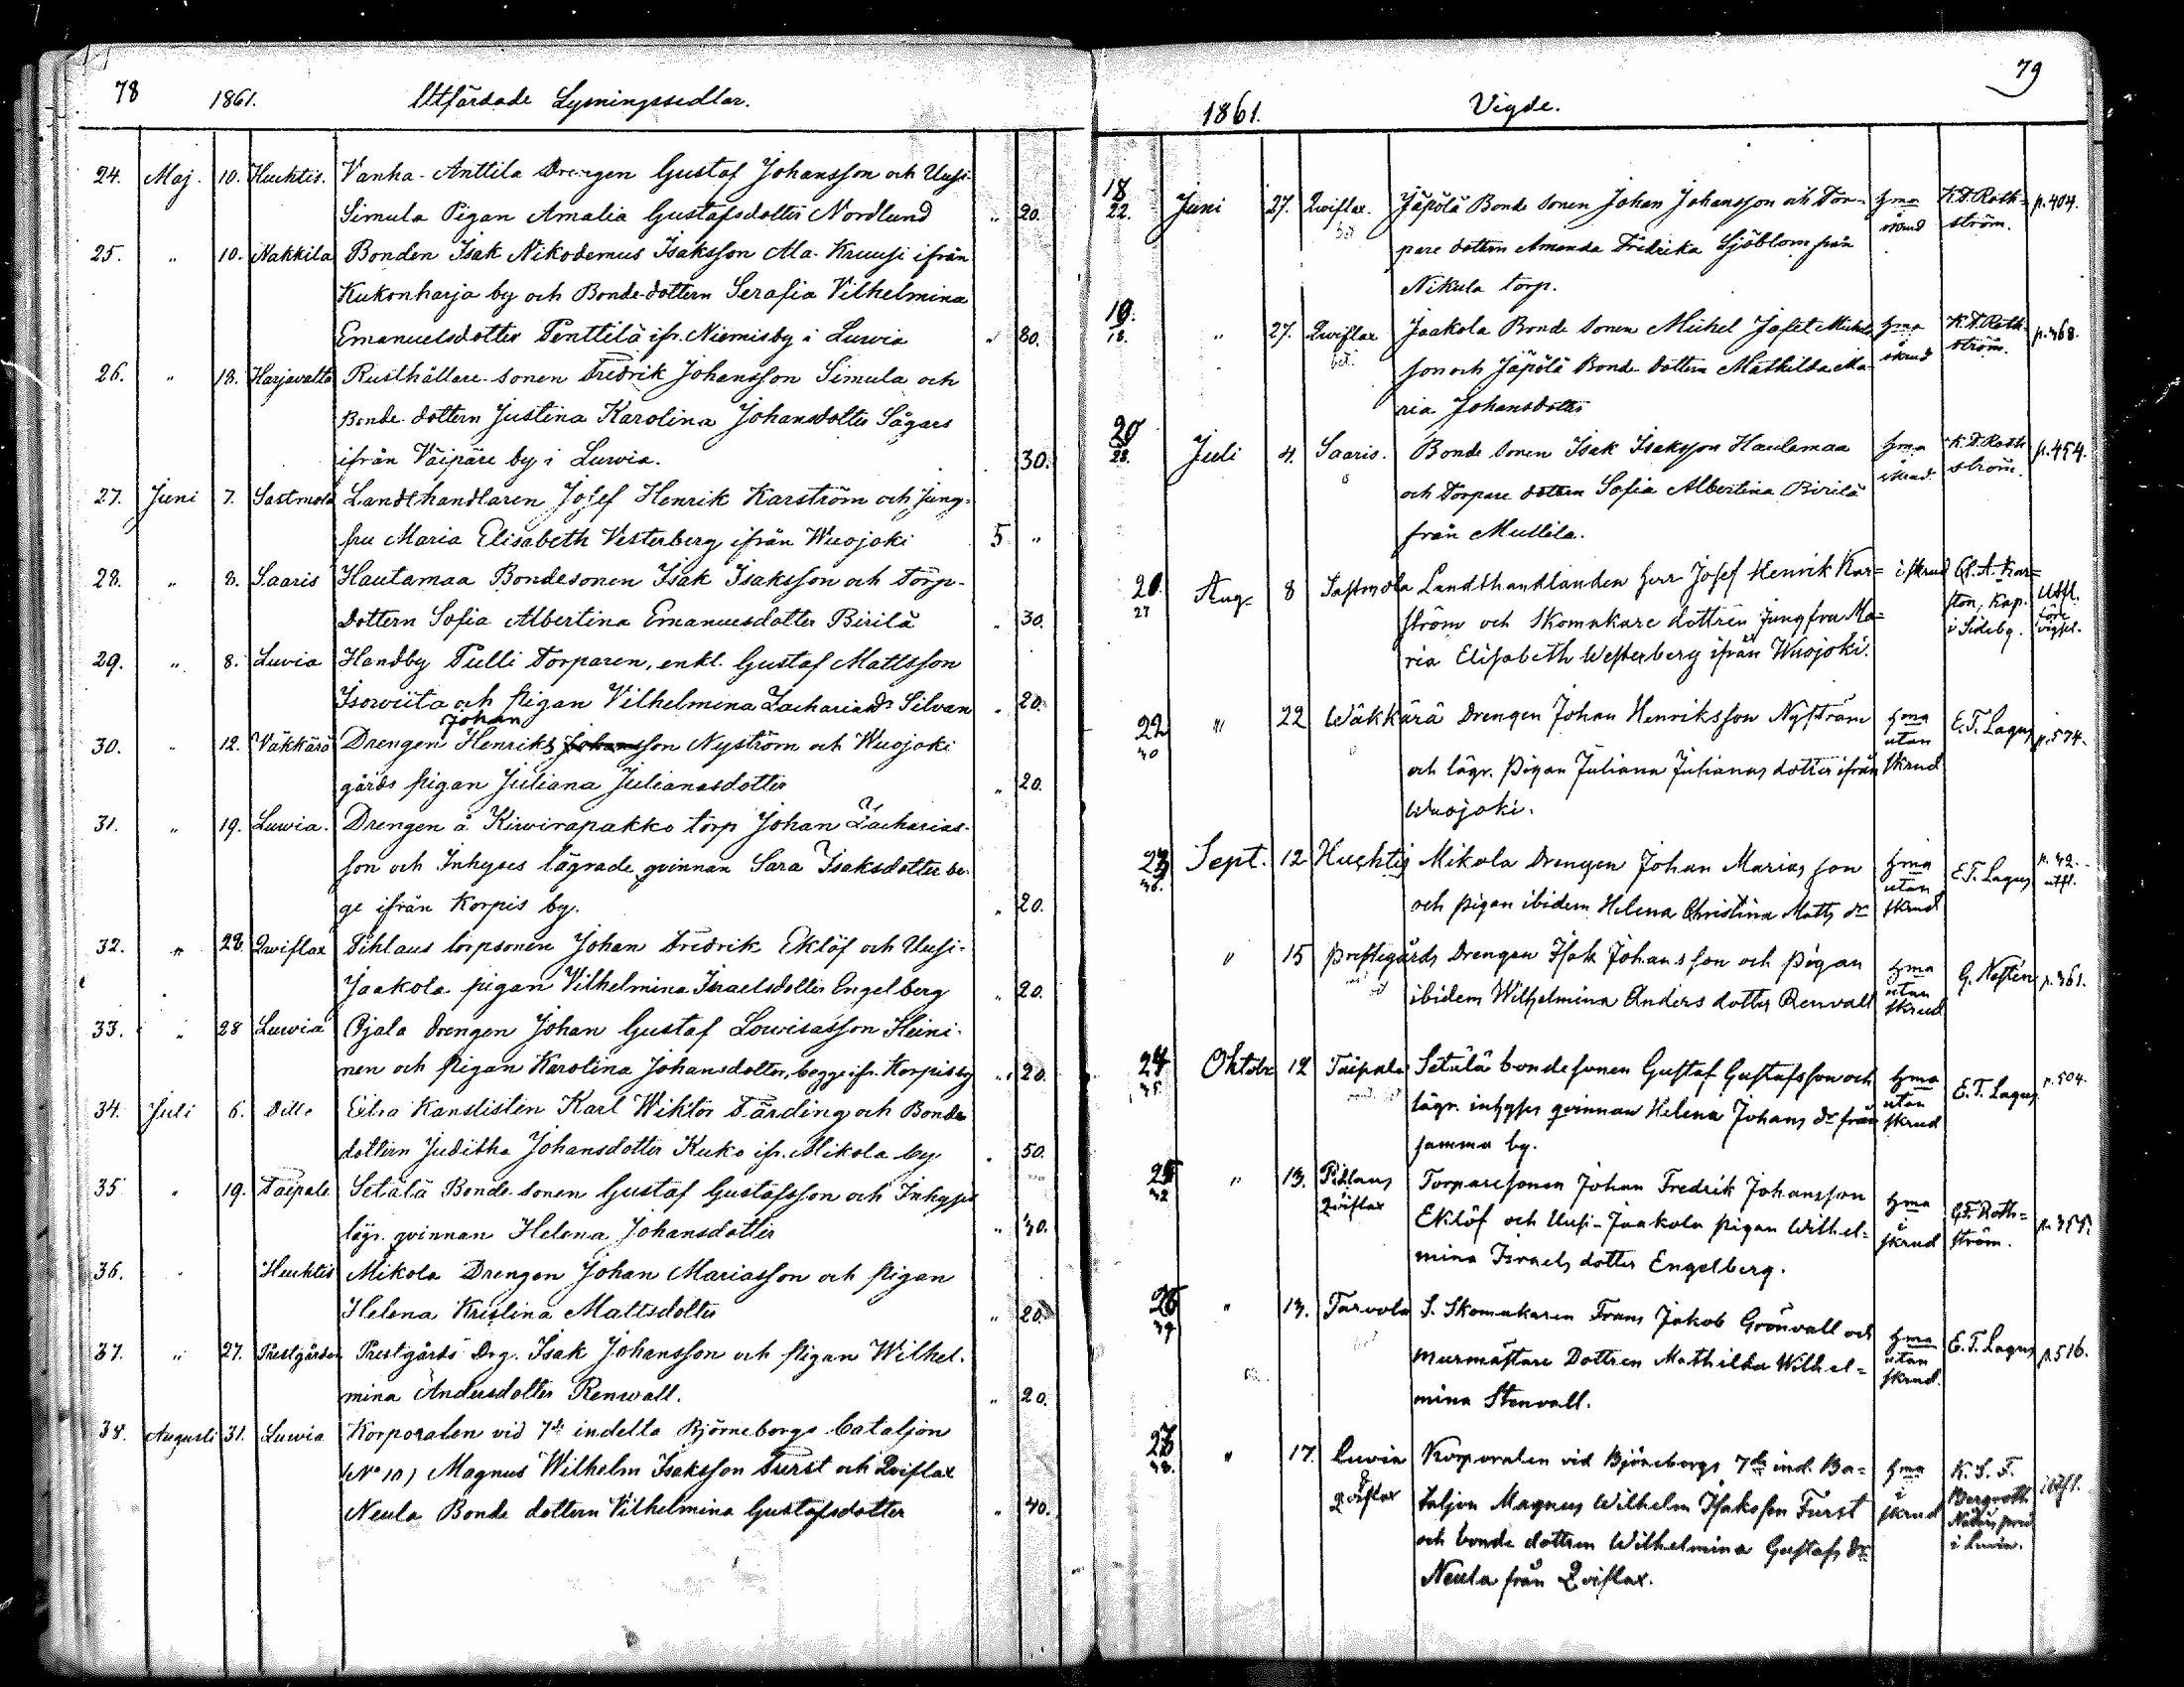 78 1861. Utfärdade Lysningssedlar.
24. Maj. 10. Huchtis. Vanha-Anttila Drengen Gustaf Johansson och Uusi-
Simula Pigan Amalia Gustafsdotter Nordlund „ 20.
25. „ 10. Nakkila Bonden Isak Nikodemus Isaksson Ala-Kruusi ifrån
Kukonharja by och Bonde-dottern Serafia Vilhelmina
Emanuelsdotter Penttilä ifr. Niemisby i Luvia „ 80.
26. „ 18. Harjavalta Rusthållare-sonen Fredrik Johansson Simula och
Bonde-dottern Justina Karolina Johansdotter Sågars
ifrån Väipäre by i Luvia. 30.
27. Juni 7. Sastmola Landthandlaren Josef Henrik Karström och Jung-
fru Maria Elisabeth Vesterberg ifrån Wuojoki 5 „
28. „ 8. Saaris Hautamaa Bondesonen Isak Isaksson och Torp-
dottern Sofia Albertina Emanuelsdotter Birilä „ 30.
29. „ 8. Luvia Handby Tulli Torparen, enkl. Gustaf Mattsson
Isowiita och pigan Vilhelmina Zachariæ dr Silvan „ 20.
Johan
30. „ 12. Väkkärä Drengen Henriks Johansson Nyström och Wuojoki
gårds pigan Juliana Julianasdotter „ 20.
31. „ 19. Luwia. Drengen å Kirwirapakko torp Johan Zacharias-
son och Inhyses lägrade qvinnan Sara Isaksdotter be-
ge ifrån Korpis by. „ 20.
32. „ 28. Qwiflax Pihlaus torpsonen Johan Fredrik Eklöf och Uusi-
Jaakola pigan Vilhelmina Israelsdotter Engelberg „ 20.
33. „ 28 Luwia Ojala drengen Johan Gustaf Lowisasson Heini-
nen och pigan Karolina Johansdotter, begge ifr. Korpisby „ 20.
34. Juli 6. Ditto Extra Kanslisten Karl Wiktor Färding och Bonde
dottern Juditha Johansdotter Kuko ifr. Mikola by „ 50.
35 „ 19. Taipale Setälä Bonde-sonen Gustaf Gustafsson och Inhyses
lägr. qvinnan Helena Johansdotter „ 30.
36. „ Huchtis Mikola Drengen Johan Mariasson och pigan
Helena Kristina Mattsdotter „ 20.
37. „ 27. Prestgården Prestgårds Drg. Isak Johansson och pigan Wilhel-
mina Andersdotter Renwall. „ 20.
38. Augusti 31. Luwia Korporalen vid 7de indelta Björneborgs bataljon
(No 10) Magnus Wilhelm Isaksson Furst och Qviflax
Neula Bonde dottern Vilhelmina Gustafsdotter „ 40.
79
1861. Vigde.
18 22. Juni 27. Qwiflax. Jäpölä Bonde sonen Johan Johansson och Tor- hma i skrud K. F. Roth-
ström. p. 404.
pare dottern Amanda Fredrika Sjöblom från
Nikula torp.
19. 18. „ 27. Qwiflax Jaakola Bonde sonen Michel Jafet Michels- hma i skrud K. F. Roth-
ström. p. 368.
son och Jäpölä Bonde-dottern Mathilda Ma-
ria Johansdotter
20 28. Juli 4. Saaris. Bonde sonen Isak Isaksson Hautamaa hma i skrud. K. F. Roth-
ström. p. 454.
och Torpare dottern Sofia Albertina Birilä
från Mullila.
21. 27 Aug. 8 Sastmola Landthandlanden Herr Josef Henrik Kar= i skrud
ström och Skomakare dottren Jungfru Ma= i Sideby.
ria Elisabeth Westerberg ifrån Wuojoki.
22 30 „ 22 Wäkkärä Drengen Johan Henriksson Nyström hma utan skrud E. T. Lagus p. 574.
och lägr. pigan Juliana Julianas dotter ifrån
Wuojoki.
23 36. Sept. 12 Huchtis Mikola Drengen Johan Marias son hma utan skrud E. T. Lagus p. 42. utfl.
och pigan ibidem Helena Christina Matts dr
„ 15 Prestegårds Drengen Isak Johansson och pigan hma utan skrud G. Nestén p. 361.
ibidem Wilhelmina Anders dotter Renvall
24 35. Oktobr 12 Taipale Setälä bondesonen Gustaf Gustafsson och hma utan skrud E. T. Lagus p. 504.
lägr. inhyses qvinnan Helena Johans dr från
samma by.
25 32 „ 13. Pihlaus Qwiflax Torparesonen Johan Fredrik Johansson hma i skrud Roth=
ström. p. 355.
Eklöf och Uusi-Jaakola pigan Wilhel=
mina Israels dotter Engelberg.
26 39 „ 13. Tarvola S. Skomakaren Frans Jakob Grönvall och hma utan skrud. E. T. Lagus p. 516.
murmästare Dottren Mathilda Wilhel=
mina Stenvall.
27 38. „ 17. Luvia & Qviflax Korporalen vid Björneborgs 7de ind. Ba= hma i skrud K. S. F.
Bergroth i Luvia. utfl.
taljon Magnus Wilhelm Isaksson Furst
och bonde dottren Wilhelmina Gustafs dr
Neula från Qviflax.